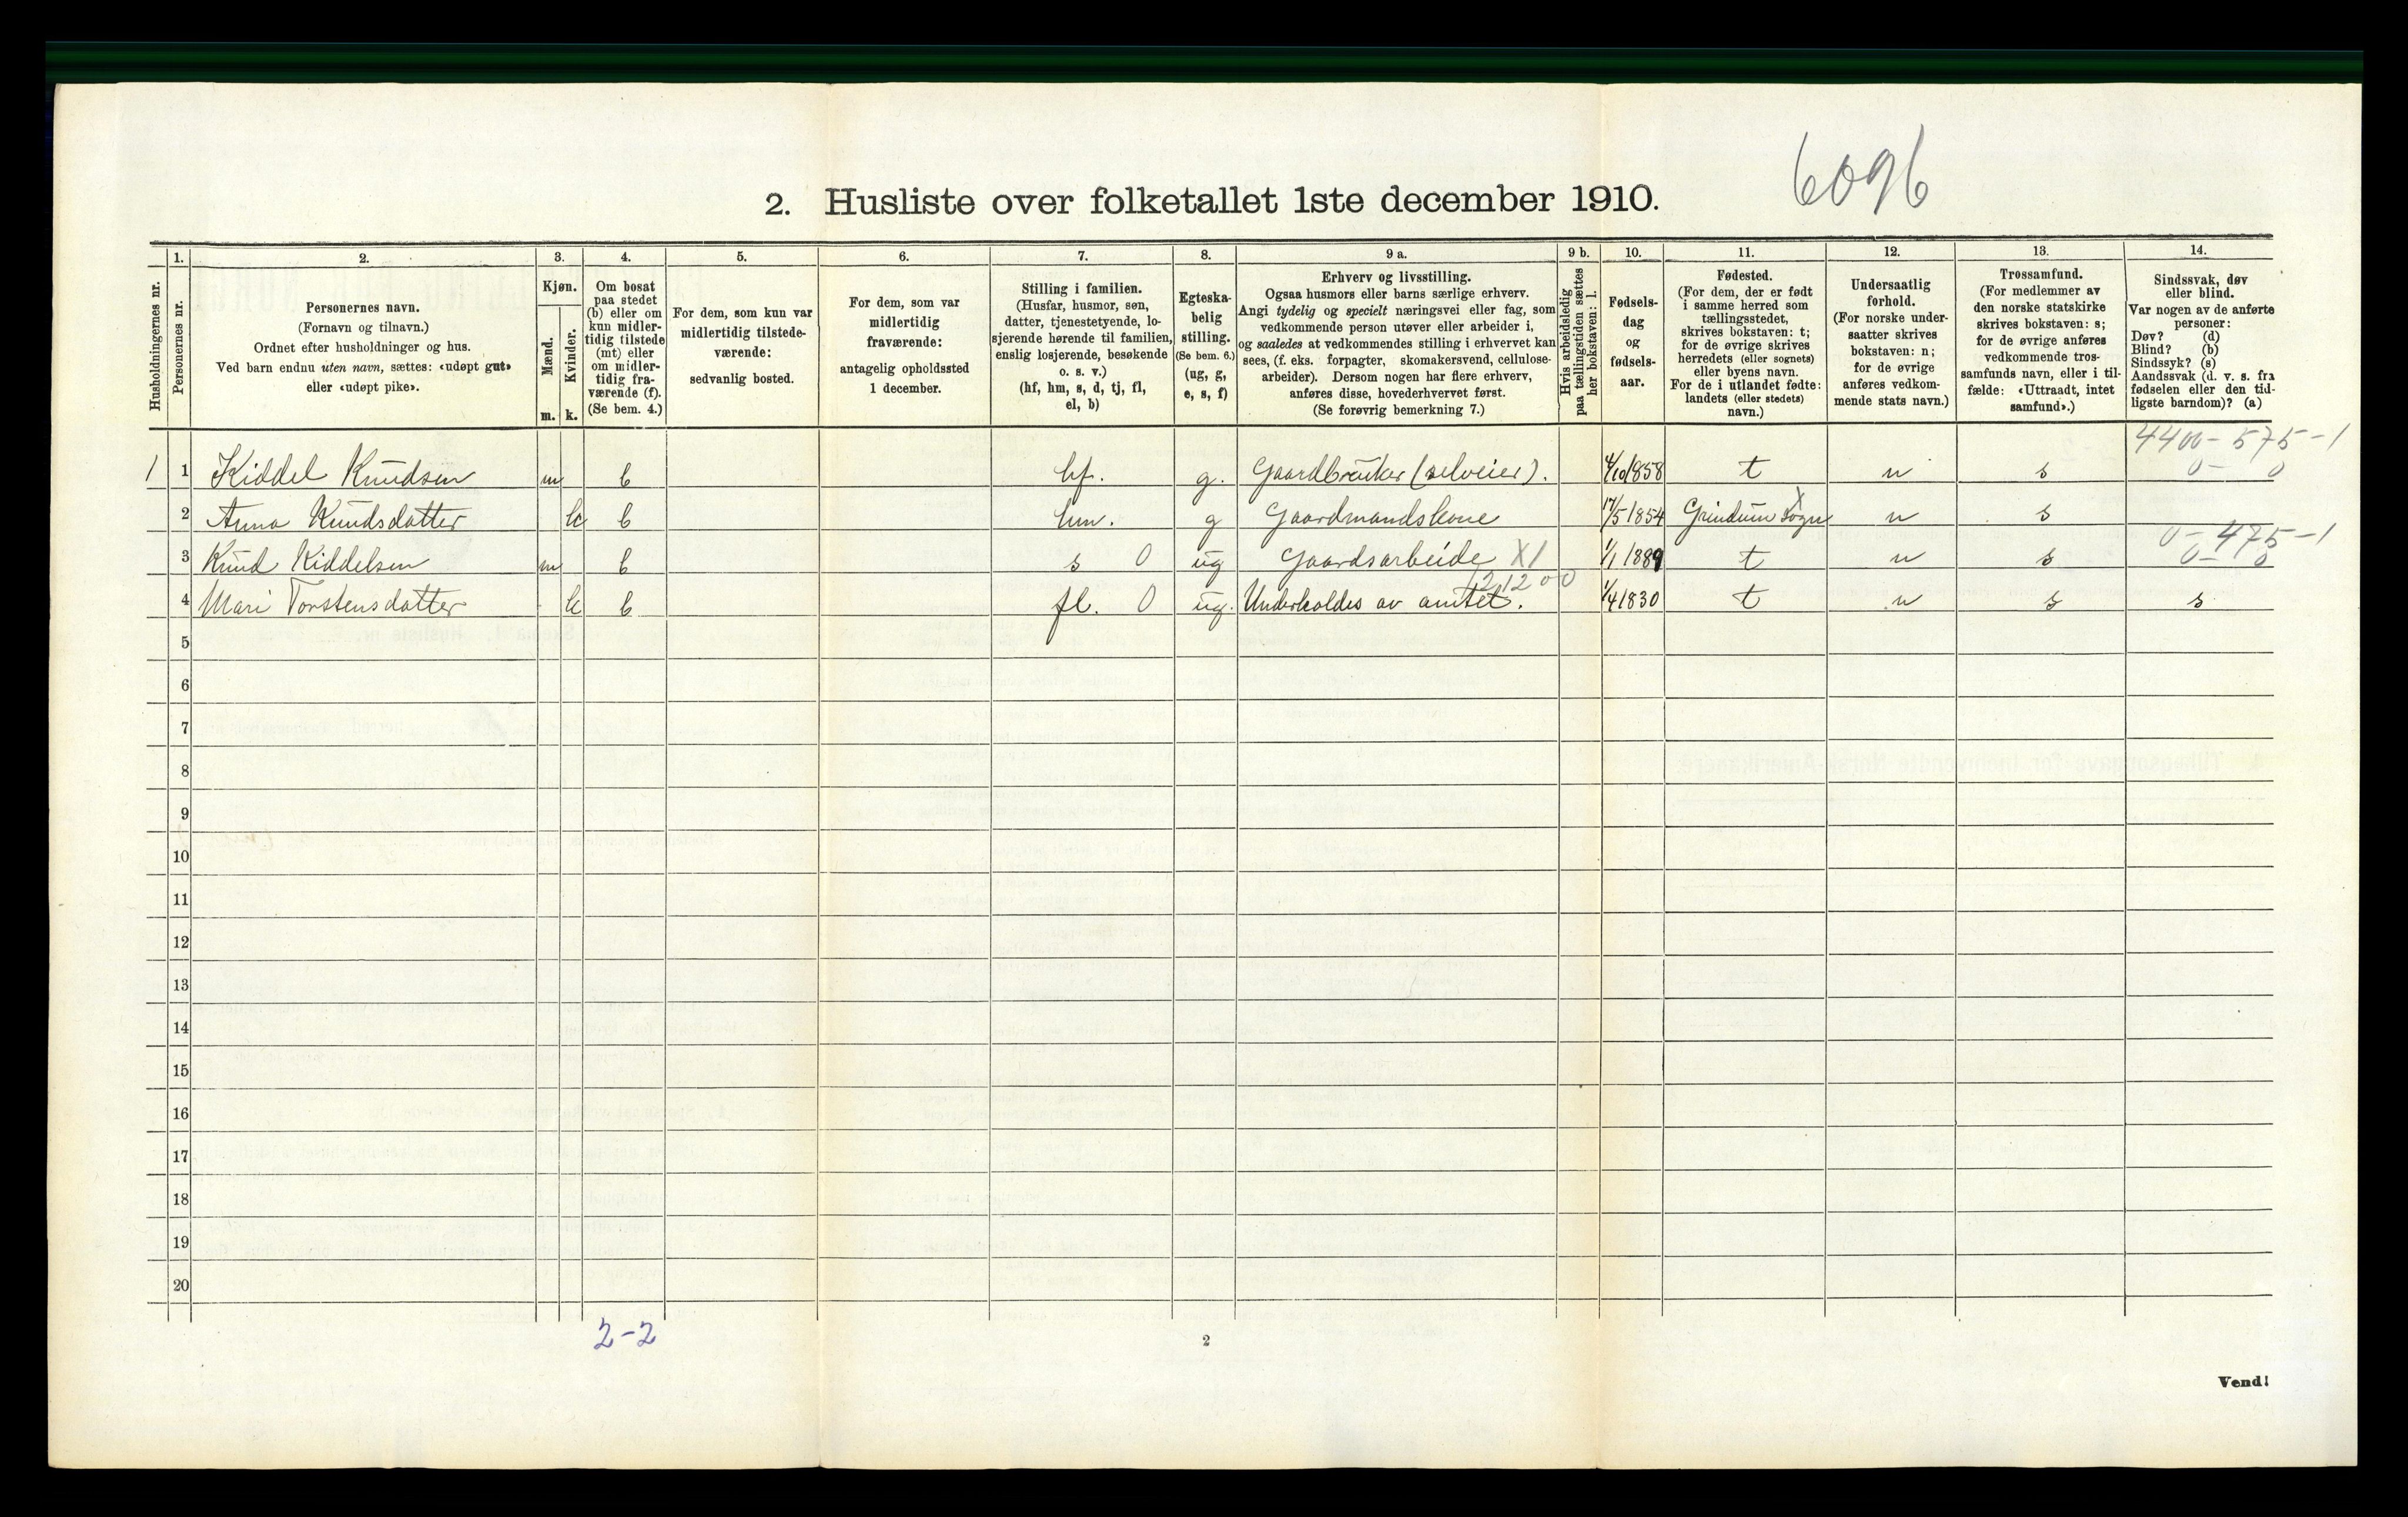 6096
2. Husliste over folketallet 1ste december 1910.
Husholdningernes nr.
1.
Personernes nr.
2.
Personernes navn.
(Fornavn og tilnavn.)
Ordnet efter husholdninger og hus.
Ved barn endnu uten navn, sættes: «udøpt gut»
eller «udøpt pike».
3.
Kjøn.
Mænd.
Kvinder.
m. k.
4.
Om bosat
paa stedet
(b) eller om
kun midler-
tidig tilstede
(mt) eller
om midler-
tidig fra-
værende (f).
(Se bem. 4.)
5.
For dem, som kun var
midlertidig tilstede-
værende:
sedvanlig bosted.
6.
For dem, som var
midlertidig
fraværende:
antagelig opholdssted
1 december.
7.
Stilling i familien.
(Husfar, husmor, søn,
datter, tjenestetyende, lo-
sjerende hørende til familien,
enslig losjerende, besøkende
o. s. v.)
(hf, hm, s, d, tj, fl,
el, b)
8.
Egteska-
belig
stilling.
(Se bem. 6.)
(ug, g,
e, s, f)
9 a.
Erhverv og livsstilling.
Ogsaa husmors eller barns særlige erhverv.
Angi tydelig og specielt næringsvei eller fag, som
vedkommende person utøver eller arbeider i,
og saaledes at vedkommendes stilling i erhvervet kan
sees, (f. eks. forpagter, skomakersvend, cellulose-
arbeider). Dersom nogen har flere erhverv,
anføres disse, hovederhvervet først.
(Se forøvrig bemerkning 7.)
9 b.
Hvis arbeidsledig
paa tællingstiden sættes
her bokstaven: l.
10.
Fødsels-
dag
og
fødsels-
aar.
11.
Fødested.
(For dem, der er født
i samme herred som
tællingsstedet,
skrives bokstaven: t;
for de øvrige skrives
herredets (eller sognets)
eller byens navn.
For de i utlandet fødte:
landets (eller stedets)
navn.)
12.
Undersaatlig
forhold.
(For norske under-
saatter skrives
bokstaven: n;
for de øvrige
anføres vedkom-
mende stats navn.)
13.
Trossamfund.
(For medlemmer av
den norske statskirke
skrives bokstaven: s;
for de øvrige anføres
vedkommende tros-
samfunds navn, eller i til-
fælde: «Uttraadt, intet
samfund».)
14.
Sindssvak, døv
eller blind.
Var nogen av de anførte
personer:
Døv? (d)
Blind? (b)
Sindssyk? (s)
Aandssvak (d. v. s. fra
fødselen eller den tid-
ligste barndom)? (a)
4400-575-1
0- 0
1 1 Kiddel Knudsen m b hf. g. Gaardbruker (selveier). 4/10 1858 t n s
2 Anna Knudsdatter k b hm. g Gaardmandskone 17/5 1854 Grindum Sogn X n s
0-475-1
0- 0
3 Knud Kiddelsen m b s 0 ug Gaardsarbeide X1 1/1 1889 t n s
121200
4 Mari Torstensdatter k b fl. 0 ug. Underholdes av amtet. 1/4 1830 t n s s
5
6
7
8
9
10
11
12
13
14
15
16
17
18
19
20
2-2
2
Vend!